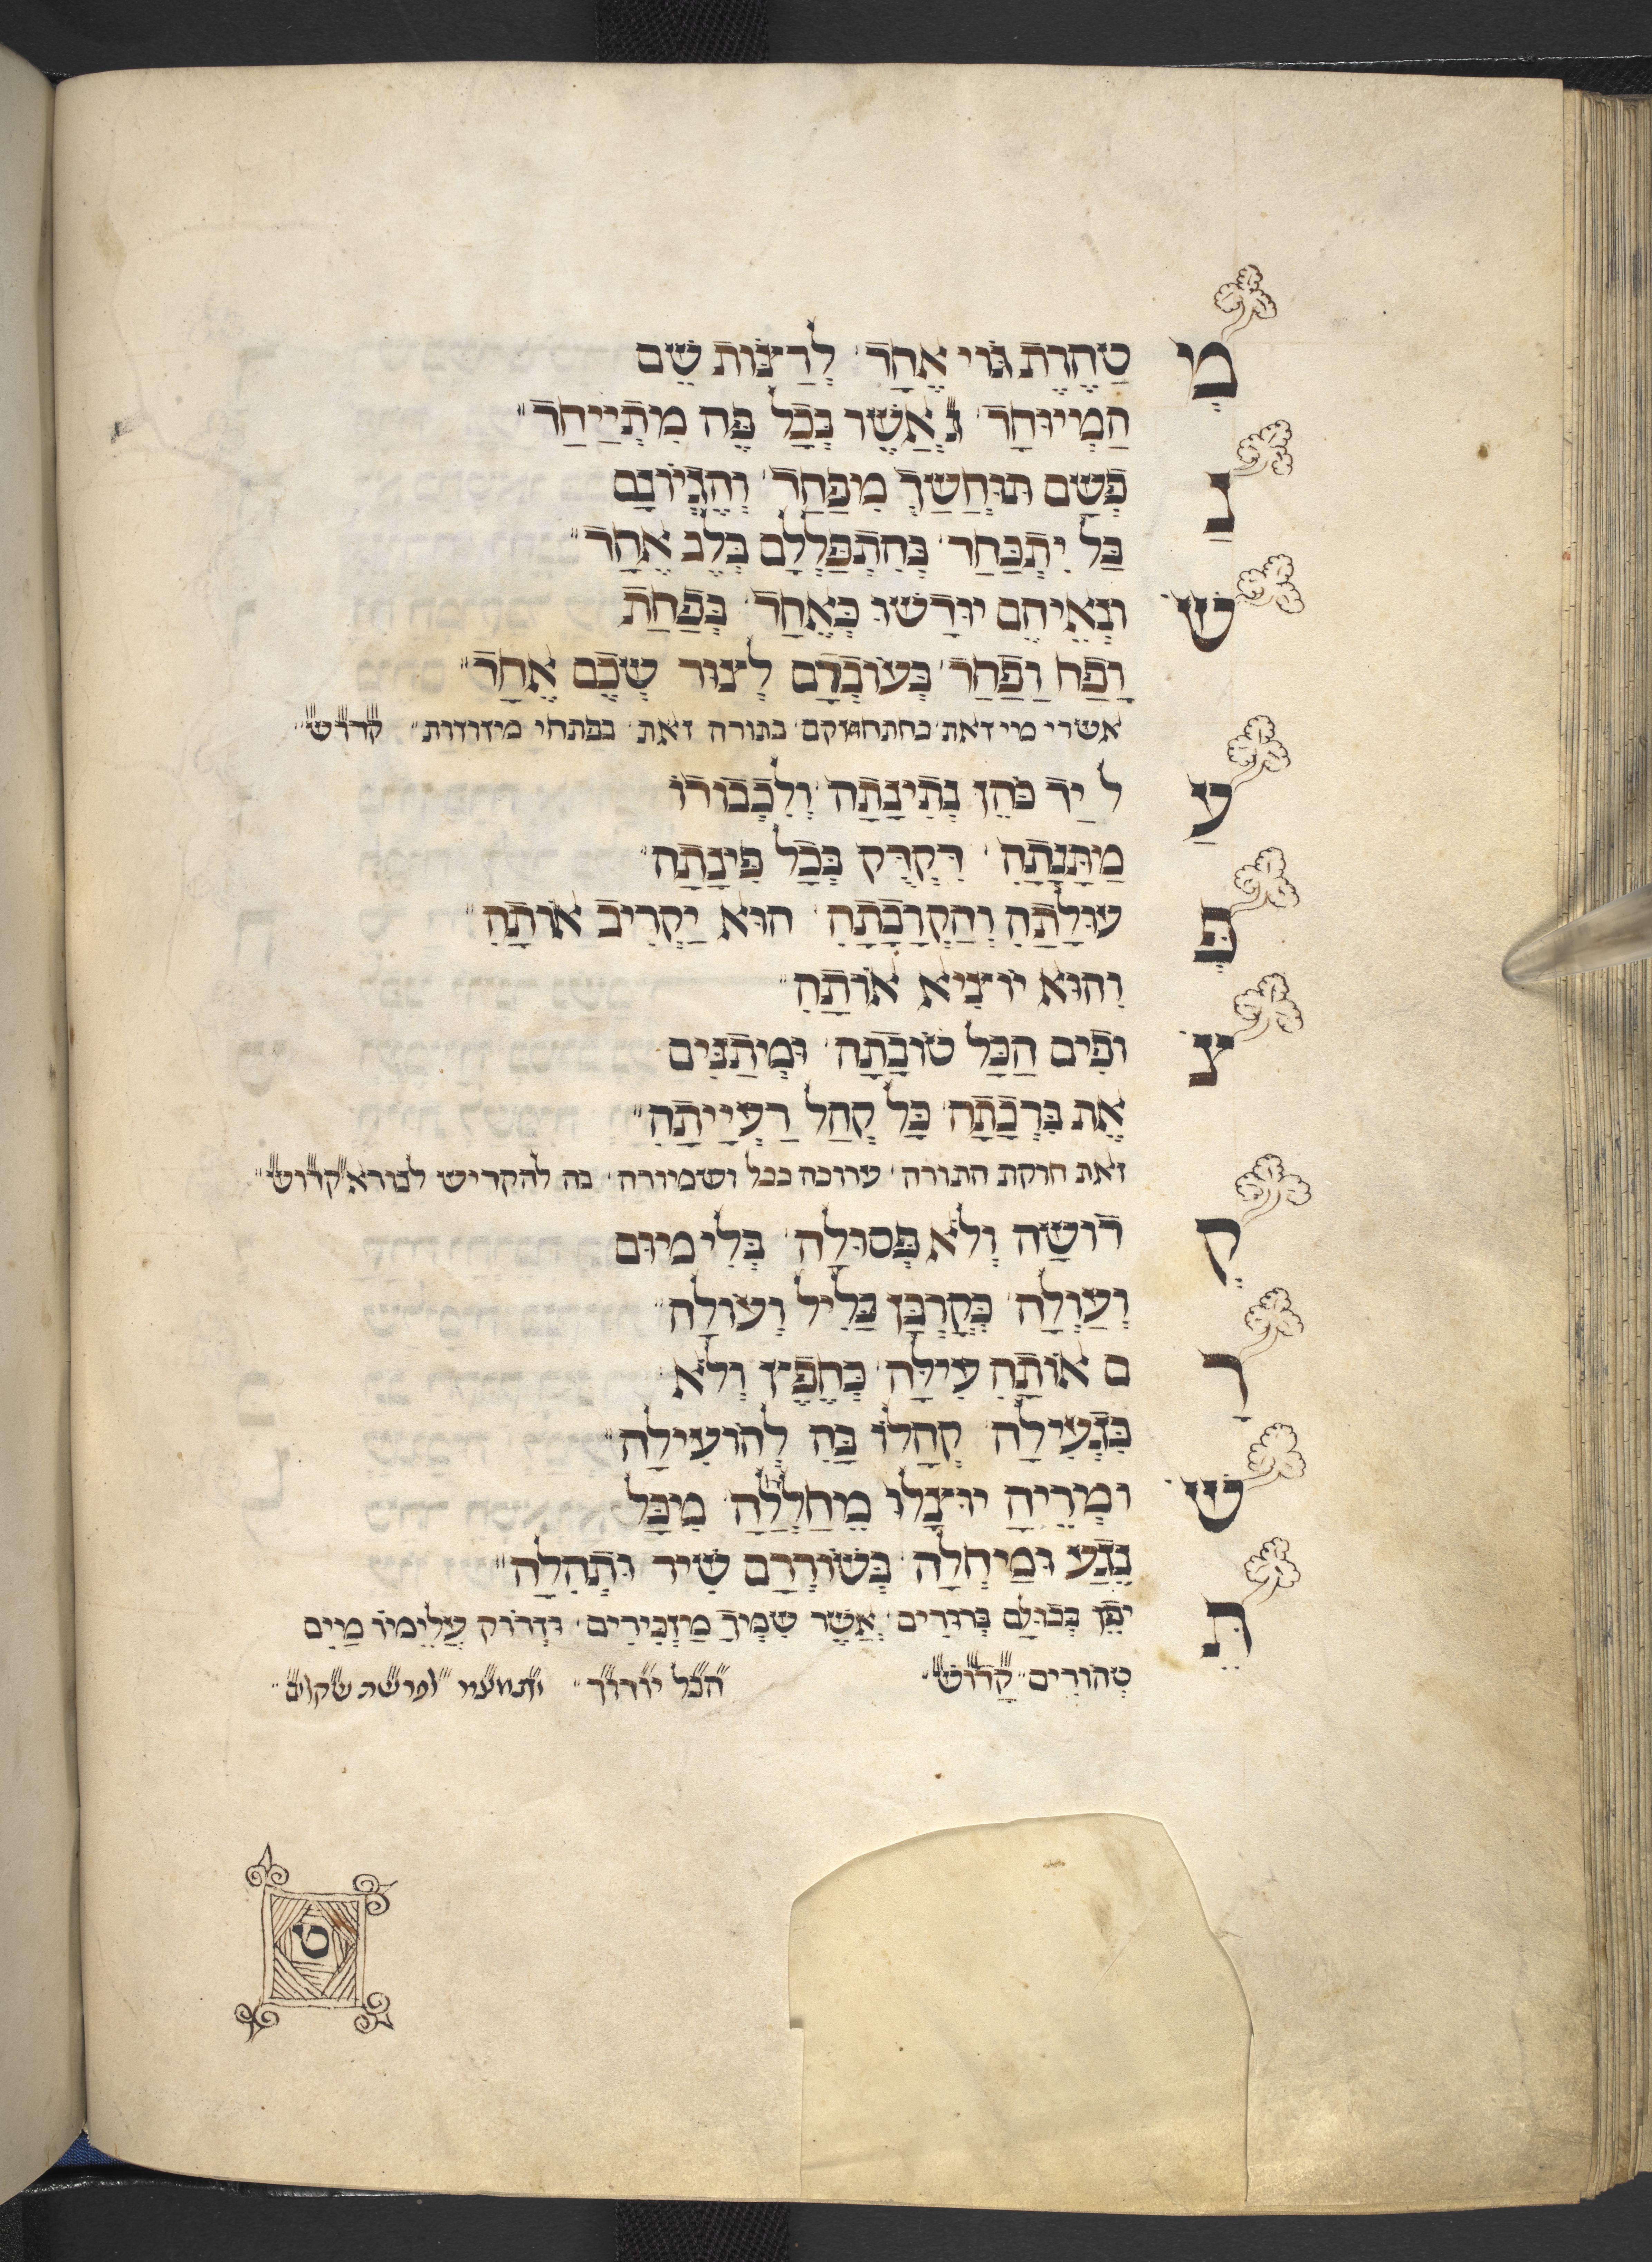 מְ טַהֶרֶת גּוֹי אֶחָד׳ לְרַצּוֹת שֵׁם
הַמְיוּחָד׳ וַאֲשֶׁר בְּכָל פֶּה מִתְיַיחַד״
נַ פְשָׁם תּוּחֲשַׂךְ מִפַּחַד׳ וְהֶגְיוֹנָם
בַּל יִתְכַּחַד׳ בְּהִתְפַּלְלָם בְּלֵב אֶחָד״
שׂ וֹנְאֵיהֶם יוּרָשׁוּ כְּאֶחָד׳ בְּפַחַת
וָפַח וָפַחַד׳ בְּעוֹבְדָם לְצוּר שְׁכֶם אֶחָד״
אשרי מי זאת׳ בחתחזקם׳ בתורה זאת׳ בפתחי מזוזות״ קדוש״
עַ ל יַד כֹּהֵן נְתִינָתָהּ׳ וְלִכְבוֹדוֹ
מַתְּנָתָהּ׳ דִּקְדֵּק בְּכָל פִּינָתָהּ״
פְּ עוּלָתָהּ וְהַקְרָבָתָהּ׳ הוּא יַקְרִיב אוֹתָהּ״
וְהוּא יוֹצִיא אוֹתָהּ״
צ וֹפִים הַכָּל טוֹבָתָהּ׳ וּמְתַנִּים
אֶת בִּרְכָתָהּ׳ כָּל קְהַל רַעְיָיתָהּ״
זאת חוקת התורה׳ ערוכה בכל ושמורה׳ בה להקדיש לנורא קדוש״
קְ דוֹשָׁה וְלֹא פְסוּלָה׳ בְּלִי מוּם
וְעַוְלָה׳ כְּקָרְבָּן כָּלִיל וְעוֹלָה״
רָ ם אוֹתָהּ עִילָּה׳ בְּחֵפֶץ וְלֹא
בִּנְעִילָה׳ קְהָלוֹ בָּהּ לְהוֹעִילָה״
שׁ וֹמְרֶיהָ יוּצָלוּ מֵחַלְחָלָה׳ מִכָּל
נֶגַע וּמַחְלָה׳ בְּשׁוֹרְרָם שִׁיר וּתְהִלָּה״
תֵּ יפֶן בְּכוּלָּם בְּרוּרִים׳ אֲשֶׁר שִׁמְךָ מַזְכִּירִים׳ וּזְרוֹק עָלֵימוֹ מַיִם
טְהוֹרִים״ קָדוֹשׁ״ הכל יודוך״ לפרשת שקלים״
ט